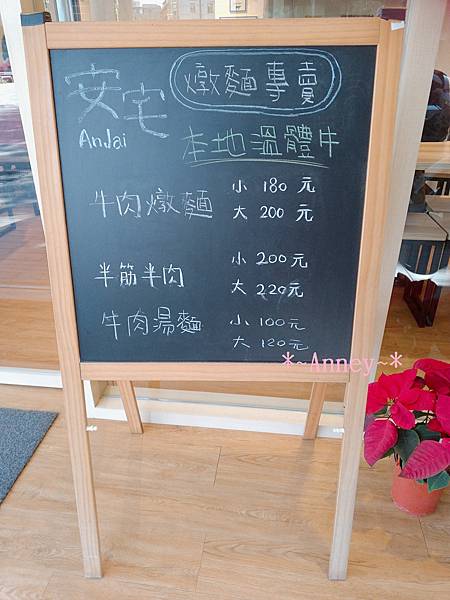 安宅
AnJai
燉麵專賣
本地溫體牛
牛肉燉麵 小 180 元
大 200 元
半筋半肉 小 200元
大 220元
牛肉湯麵 小 100元
大 120元
*~Anney~*